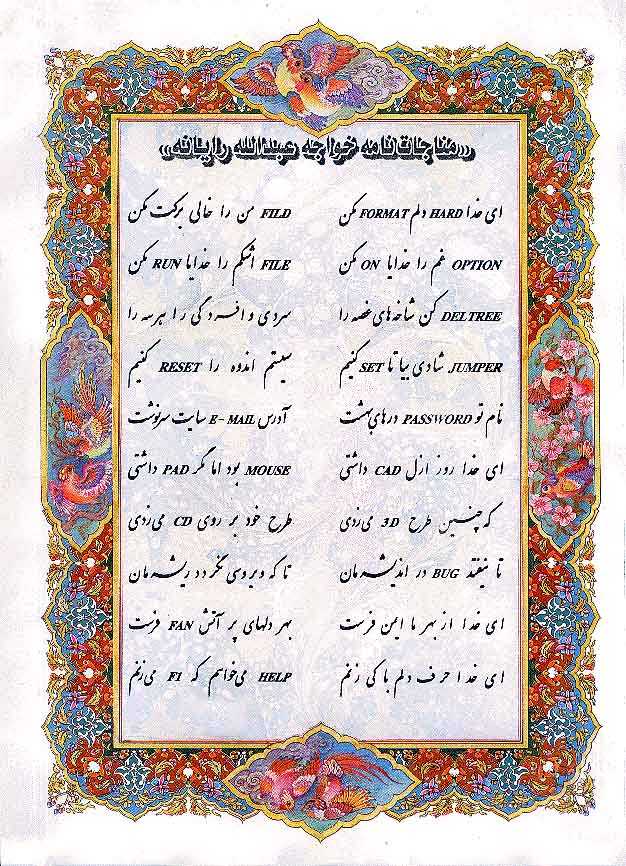 «مناجات‌نامه خواجه عبدالله رایانه»
ای خدا HARD دلم FORMAT مکن FILD من را خالی برکت مکن
OPTION غم را خدایا ON مکن FILE اشکم را خدایا RUN مکن
DELTREE کن شاخه‌های غصه را سردی و افسردگی را هر سه را
JUMPER شادی بیا تا SET کنیم سیستم اندوه را RESET کنیم
نام تو PASSWORD درهای بهشت آدرس E-MAIL سایت سرنوشت
ای خدا روز ازل CAD داشتی MOUSE بود اما مگر PAD داشتی
که چنین طرح 3D می‌زدی طرح خود بر روی CD می‌زدی
تا نیفتد BUG در اندیشه‌مان تا که ویروسی نگردد ریشه‌مان
ای خدا از بهر ما این فرست بهر دلهای پر آتش FAN فرست
ای خدا حرف دلم با کی زنم HELP می‌خواهم که F1 می‌زنم